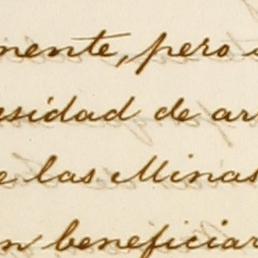 nente, pero
esidad de ar
e las Minas
n beneficiar